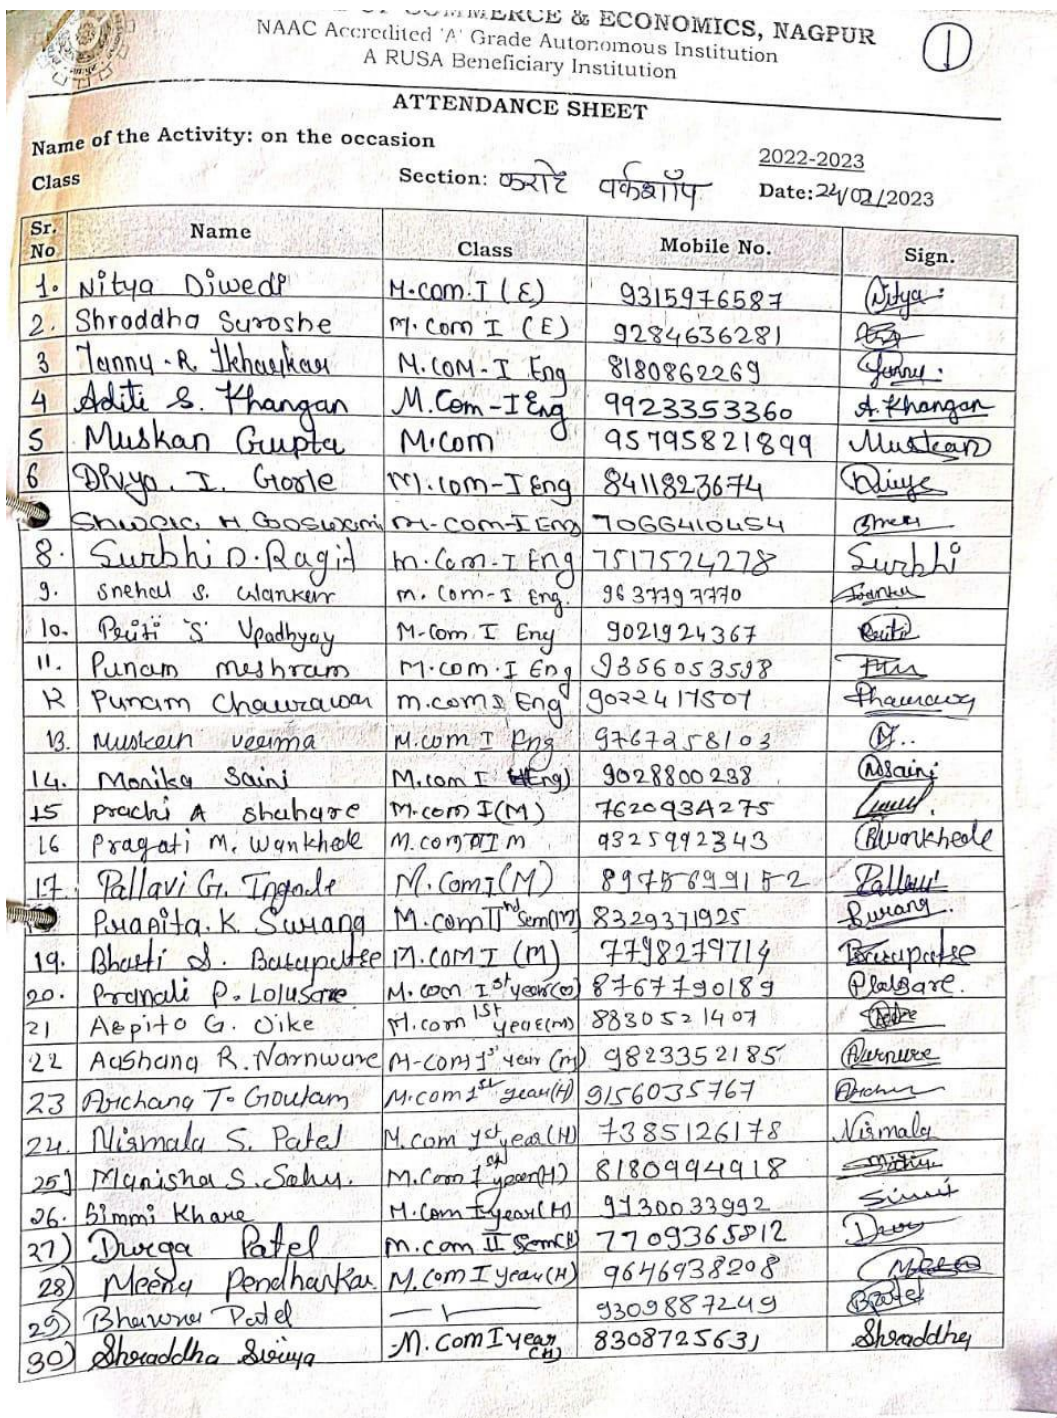 COMMERCE & ECONOMICS, NAGPUR
NAAC Accredited 'A' Grade Autonomous Institution
A RUSA Beneficiary Institution
1
ATTENDANCE SHEET
Name of the Activity: on the occasion
2022-2023
Class Section: कराटे वर्कशॉप Date:24/02/2023
Sr. No Name Class Mobile No. Sign.
1. Nitya Diwedi M.com.I (E) 9315976587 Nitya
2. Shraddha Suroshe M.Com I (E) 9284636281
3 Tanny.R. Ikharkar M.COM-I Eng 8180862269
4 Aditi S. Khangan M.Com-I Eng 9923353360 A.Khangan
5 Muskan Gupta M.com 95795821899 Muskan
6 Divya. I. Goole M.com-I Eng 8411823674 Divya
Shweta H Gooswami M-com-I Eng 7066410454
8. Surbhi D. Ragit m.Com-I Eng 7517524278 Surbhi
9. Snehal S. Walanker m. Com-I Eng. 9637797770
10. Priti S Upadhyay M-Com I Eng 9021924367 Priti
11. Punam meshram M.com.I Eng 9356053598
12 Punam Chawrawar m.com I Eng 9022417507
13. Muskan verma M.com I Eng 9767258103
14. Monika Saini M.com I (Eng) 9028800238 Msaini
15 prachi A shahare M.com I(M) 7620934275
16 Pragati M. Wankhede M.com I m 9325992343 Wankhede
17. Pallavi G. Ingole M.Com I (M) 8975699152 Pallavi
K. Surang M.com II nd Sem(M) 8329371925
19. Bharti S. M.com I (M) 7798279714
20. Pranali P. M.com I st year 8767790189
21 Arpita G. Uike M.com 1st year(m) 8830521407
22 R. Narnware M-com 1st year (m) 9823352185 Narnware
23 Archana T. Goutam M.com 1st year(H) 9156035767
24. Nirmala S. Patel M.com 1st year(H) 7385126178 Nirmala
25) Manisha S. Sahu. M.Com 1st year(H) 8180994918
26. Simmi Khare M.Com I year(H) 9730033992 Simmi
27) Durga Patel M.com II Sem(H) 7709365812
28) Meena Pendharkar M.Com I year(H) 9646938208 Meena
29) Bhavna Patel 9309887249 BPatel
30) Shraddha Suriya M.Com I year (H) 8308725631 Shraddha